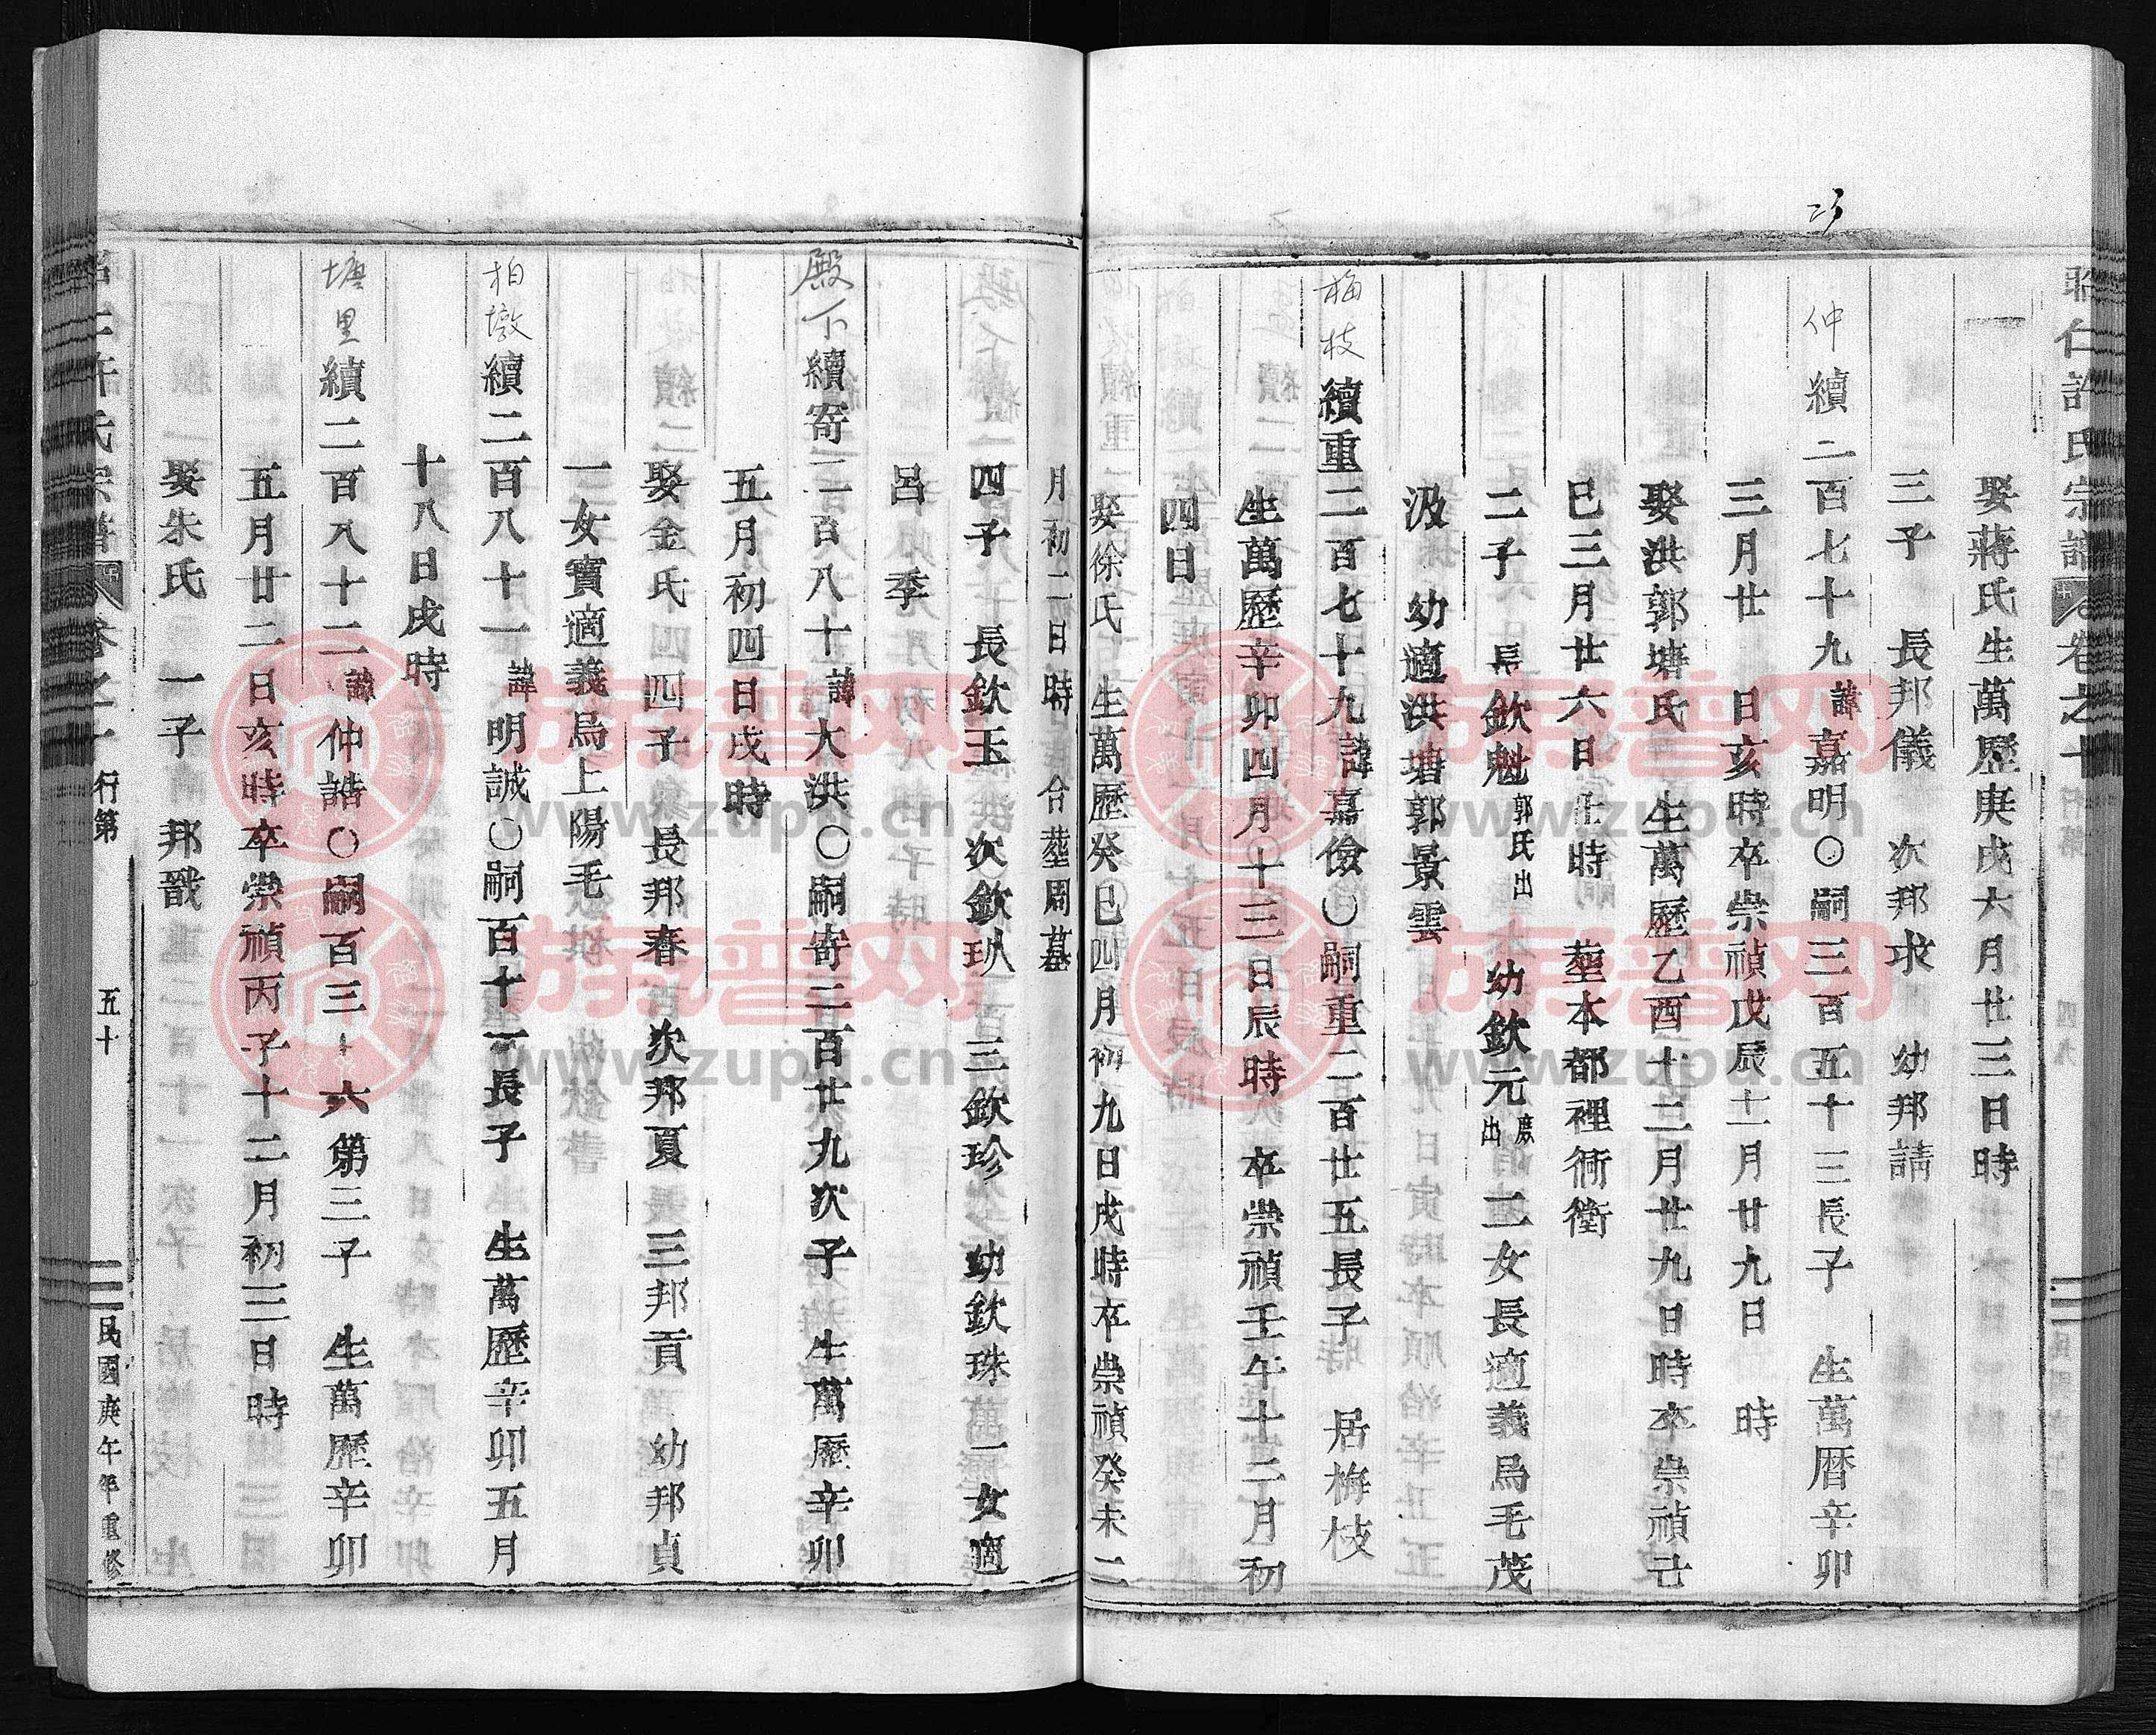 昭仁許氏宗譜 卷之十 行第 四九
娶蔣氏生萬歷庚戌六月廿三日時
三子 長邦儀 次邦求 幼邦請
仲 續二百七十九諱嘉明〇嗣三百五十三長子 生萬曆辛卯
三月廿 日亥時卒崇禎戊辰十一月廿九日 時
娶洪郭塘氏 生萬歷乙酉十二月廿九日時卒崇禎己
巳三月廿六日 時 塟本都裡衕
二子 長欽魁郭氏出 幼欽元庶出 二女長適義烏毛茂
汲 幼適洪塘郭景雲
梅枝 續重二百七十九諱嘉儉〇嗣重二百廿五長子 居梅枝
生萬歷辛卯四月十三日辰時 卒崇禎壬午十二月初
四日
娶徐氏 生萬歷癸巳四月初九日戌時卒崇禎癸未二
月初二日時 合塟周墓
四子 長欽玉 次欽 三欽珍 幼欽珠 一女適
呂季
殿下 續寄二百八十諱大洪〇嗣寄二百廿九次子 生萬歷辛卯
五月初四日戌時
娶金氏 四子 長邦春 次邦夏 三邦貢 幼邦貞
一女寶適義烏上陽毛
柏墩 續二百八十一諱明誠〇嗣百十一長子 生萬歷辛卯五月
十八日戌時
塘里 續二百八十二諱仲誥〇嗣百三十六第三子 生萬歷辛卯
五月廿二日亥時卒崇禎丙子十二月初三日 時
娶朱氏 一子 邦戩
昭仁許氏宗譜 卷之十 行第 五十 民國庚午年重修
族譜网
www.zupu.cn
族譜网
www.zupu.cn
族譜网
www.zupu.cn
族譜网
www.zupu.cn